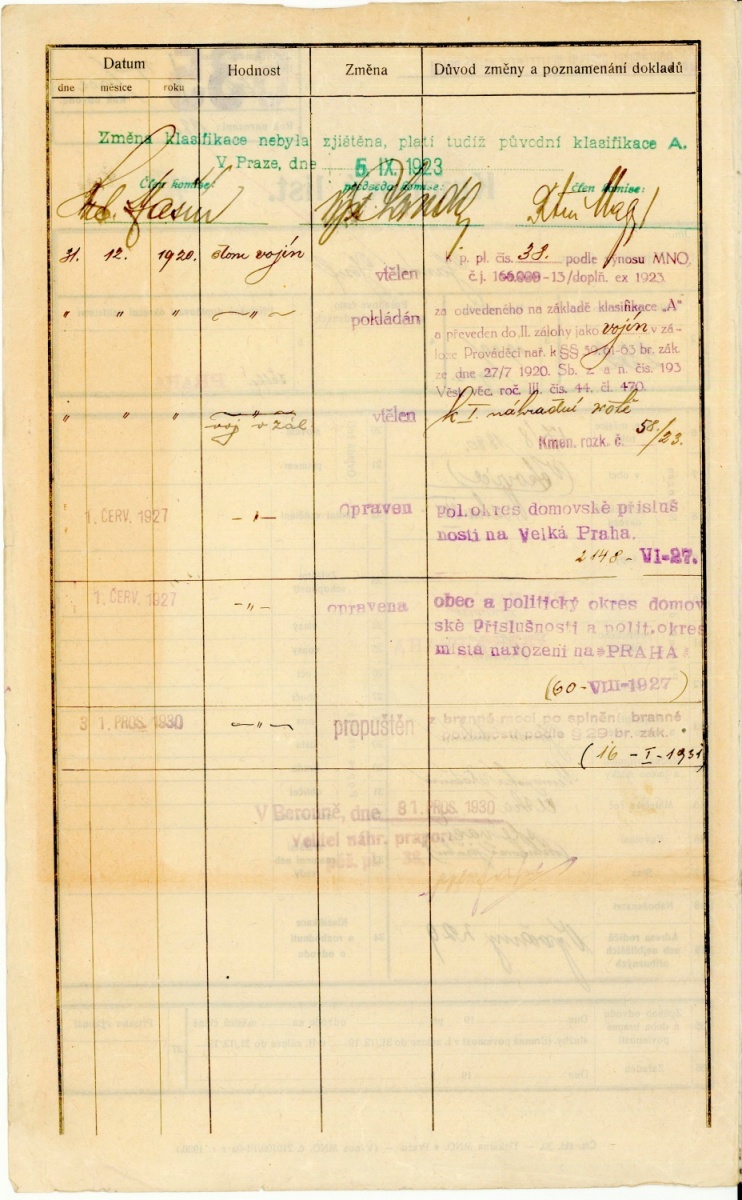 Datum Hodnost Změna Důvod změny a poznamenání dokladů
dne měsíce roku
Změna klasifikace nebyla zjištěna, platí tudíž původní klasifikace A.
V Praze, dne 5. IX. 1923
Člen komise: předseda komise: člen komise:
31. 12. 1920. dom vojín vtělen k p. pl. čís. 38. podle výnosu MNO,
č. j. -13/doplň. ex 1923.
" " " — " — pokládán za odvedeného na základě klasifikace „A"
a převeden do II. zálohy jako vojín v zá-
loze Prováděcí nař. k §§ br. zák.
ze dne 27/7 1920. Sb. z. a n. čís. 193
Věst. věc. roč. III. čís. 44. čl. 470.
" " " — " — vtělen k I. náhradní rotě
voj v zál
Kmen. rozk. č. 58./23.
1. ČERV. 1927 — " — Opraven pol. okres domovské přísluš
nosti na Velká Praha.
2148 - VI-27.
1. ČERV. 1927 — " — opravena obec a politický okres domov
ské Příslušnosti a polit. okres
místa narození na PRAHA
(60 - VIII-1927)
3 1. PROS. 1930 — " — propuštěn z branné moci po splnění branné
povinnosti podle § 29 br. zák.
(16 - I - 1931)
V Berouně, dne 31. PROS. 1930
Velitel náhr. praporu
pěš. pl. 38.